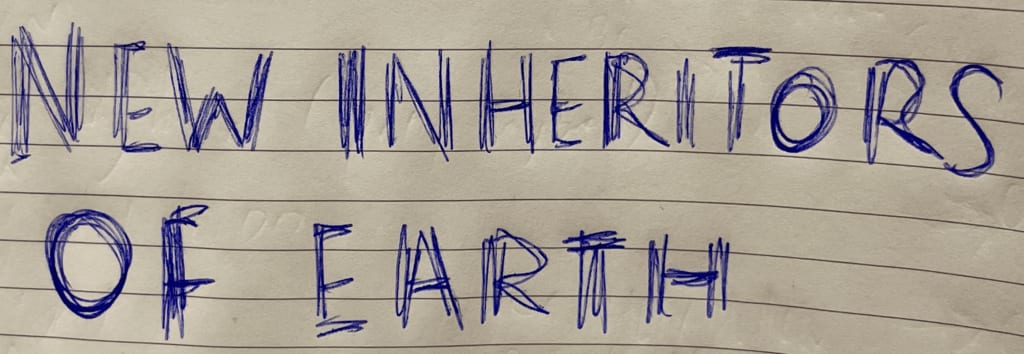 NEW INHERITORS
OF EARTH